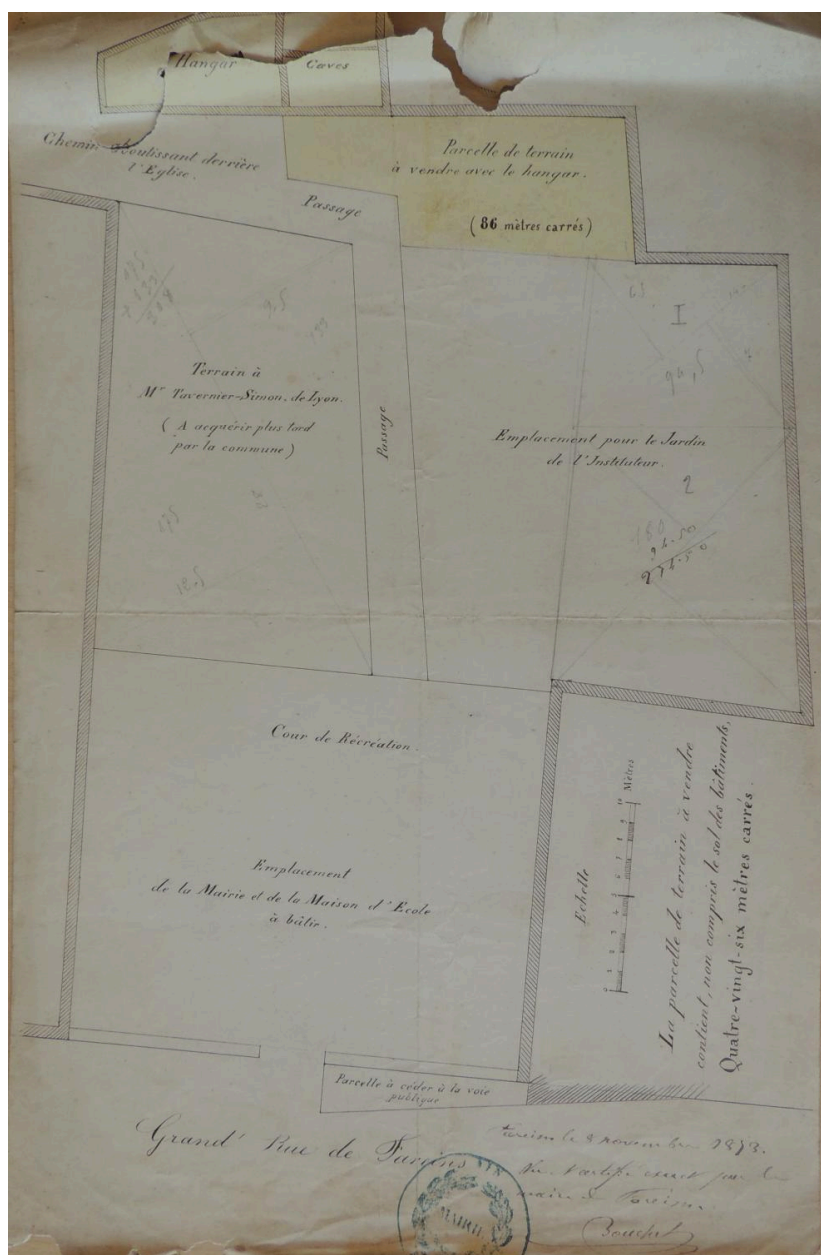 Hangar
Caves
Chemin aboutissant derrière
l'Eglise.
Parcelle de terrain
à vendre avec le hangar.
(86 mètres carrés)
Passage
Terrain à
Mr Tavernier-Simon, de Lyon.
(A acquérir plus tard
par la commune)
Passage
I
Emplacement pour le Jardin
de l'Instituteur.
2
180
94.50
274.50
Cour de Récréation.
Emplacement
de la Mairie et de la Maison d'Ecole
à bâtir.
Echelle
Mètres
La parcelle de terrain à vendre
contient, non compris le sol des bâtiments,
Quatre-vingt-six mètres carrés
Parcelle à céder à la voie
publique
Grand' Rue de Fareins
Fareins le 8 novembre 1873.
Vu & certifié exact par le
maire de Fareins.
Bouchet
MAIRIE